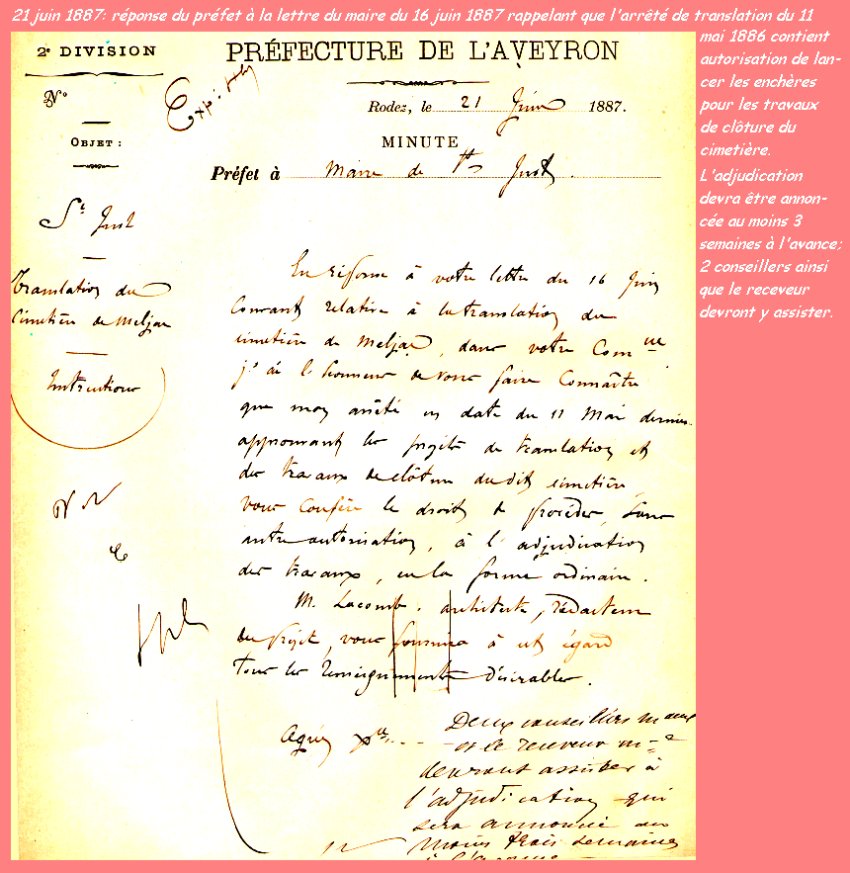 21 juin 1887: réponse du préfet à la lettre du maire du 16 juin 1887 rappelant que l'arrêté de translation du 11
mai 1886 contient
autorisation de lan-
cer les enchères
pour les travaux
de clôture du
cimetière.
L'adjudication
devra être annon-
cée au moins 3
semaines à l'avance;
2 conseillers ainsi
que le receveur
devront y assister.
2e DIVISION
No
OBJET:
St Just
Translation du
Cimetière de Meljac
Instructions
PRÉFECTURE DE L'AVEYRON
Rodez, le 21 Juin 1887.
MINUTE
Préfet à Maire de St Just.
En réponse à votre lettre du 16 Juin
Courant relative à la translation du
cimetière de Meljac, dans votre Comune
j'ai l'honneur de vous faire Connaître
que mon arrêté en date du 11 Mai dernier
approuvant les projets de translation et
des travaux de clôture du dit cimetière
vous confère le droit de procéder, sans
autre autorisation, à l'adjudication
des travaux, en la forme ordinaire.
M. Lacomb. architecte, rédacteur
du projet, vous fournira à cet égard
tous les renseignements désirables.
Agréez
Deux conseillers maux
et le receveur
devront assister à
l'adjudication qui
sera annoncée au
moins trois semaines
à l'avance